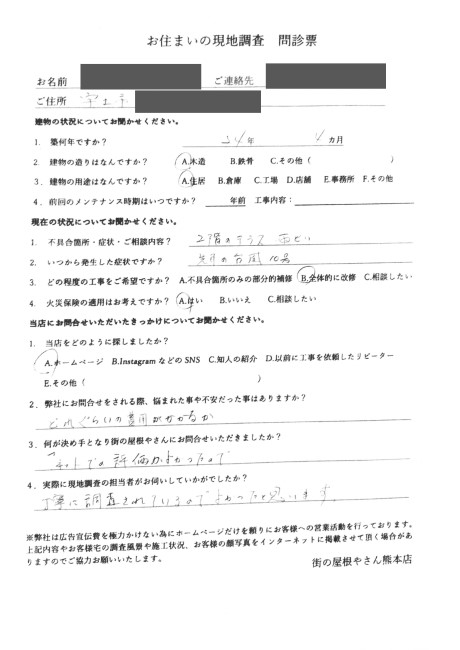 お住まいの現地調査　問診票
お名前　ご連絡先
ご住所　宇土市
建物の状況についてお聞かせください。
1.　築何年ですか？　24年　4カ月
2.　建物の造りはなんですか？　A.木造　B.鉄骨　C.その他（　）
3.　建物の用途はなんですか？　A.住居　B.倉庫　C.工場　D.店舗　E.事務所　F.その他
4.　前回のメンテナンス時期はいつですか？　年前　工事内容：
現在の状況についてお聞かせください。
1.　不具合箇所・症状・ご相談内容？　2階のテラス
2.　いつから発生した症状ですか？　先月の台風10号
3.　どの程度の工事をご希望ですか？　A.不具合箇所のみの部分的補修　B.全体的に改修　C.相談したい
4.　火災保険の適用はお考えですか？　A.はい　B.いいえ　C.相談したい
当店にお問合せいただいたきっかけについてお聞かせください。
1.　当店をどのように探しましたか？
A.ホームページ　B.Instagram などの SNS　C.知人の紹介　D.以前に工事を依頼したリピーター
E.その他（　）
2.　弊社にお問合せをされる際、悩まれた事や不安だった事はありますか？
どれぐらいの費用がかかるか
3.　何が決め手となり街の屋根やさんにお問合せいただきましたか？
ネットでの評価がよかったので
4.　実際に現地調査の担当者がお伺いしていかがでしたか？
丁寧に調査されているのでよかったと思います。
※弊社は広告宣伝費を極力かけない為にホームページだけを頼りにお客様への営業活動を行っております。
上記内容やお客様宅の調査風景や施工状況、お客様の顔写真をインターネットに掲載させて頂く場合があ
りますのでご協力お願いいたします。
街の屋根やさん熊本店